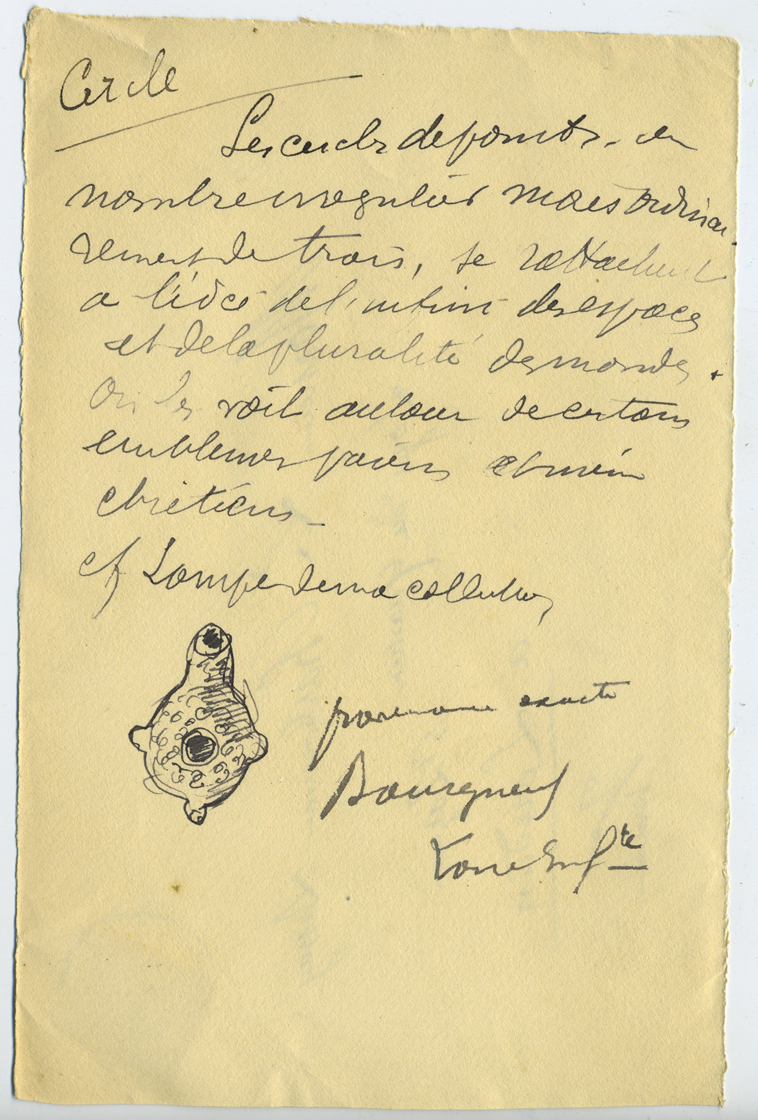 Cercle
Les cercles de points, en
nombre irregulier mais ordinai-
rement de trois, se rattachent
a l'idée de l'infini des espaces
et de la pluralité des mondes.
On les voit autour de certains
emblemes paiens et meme
chrétiens_
cf Lampe de ma collection,
provenance exacte
Bourgneuf
Loire Inf^te